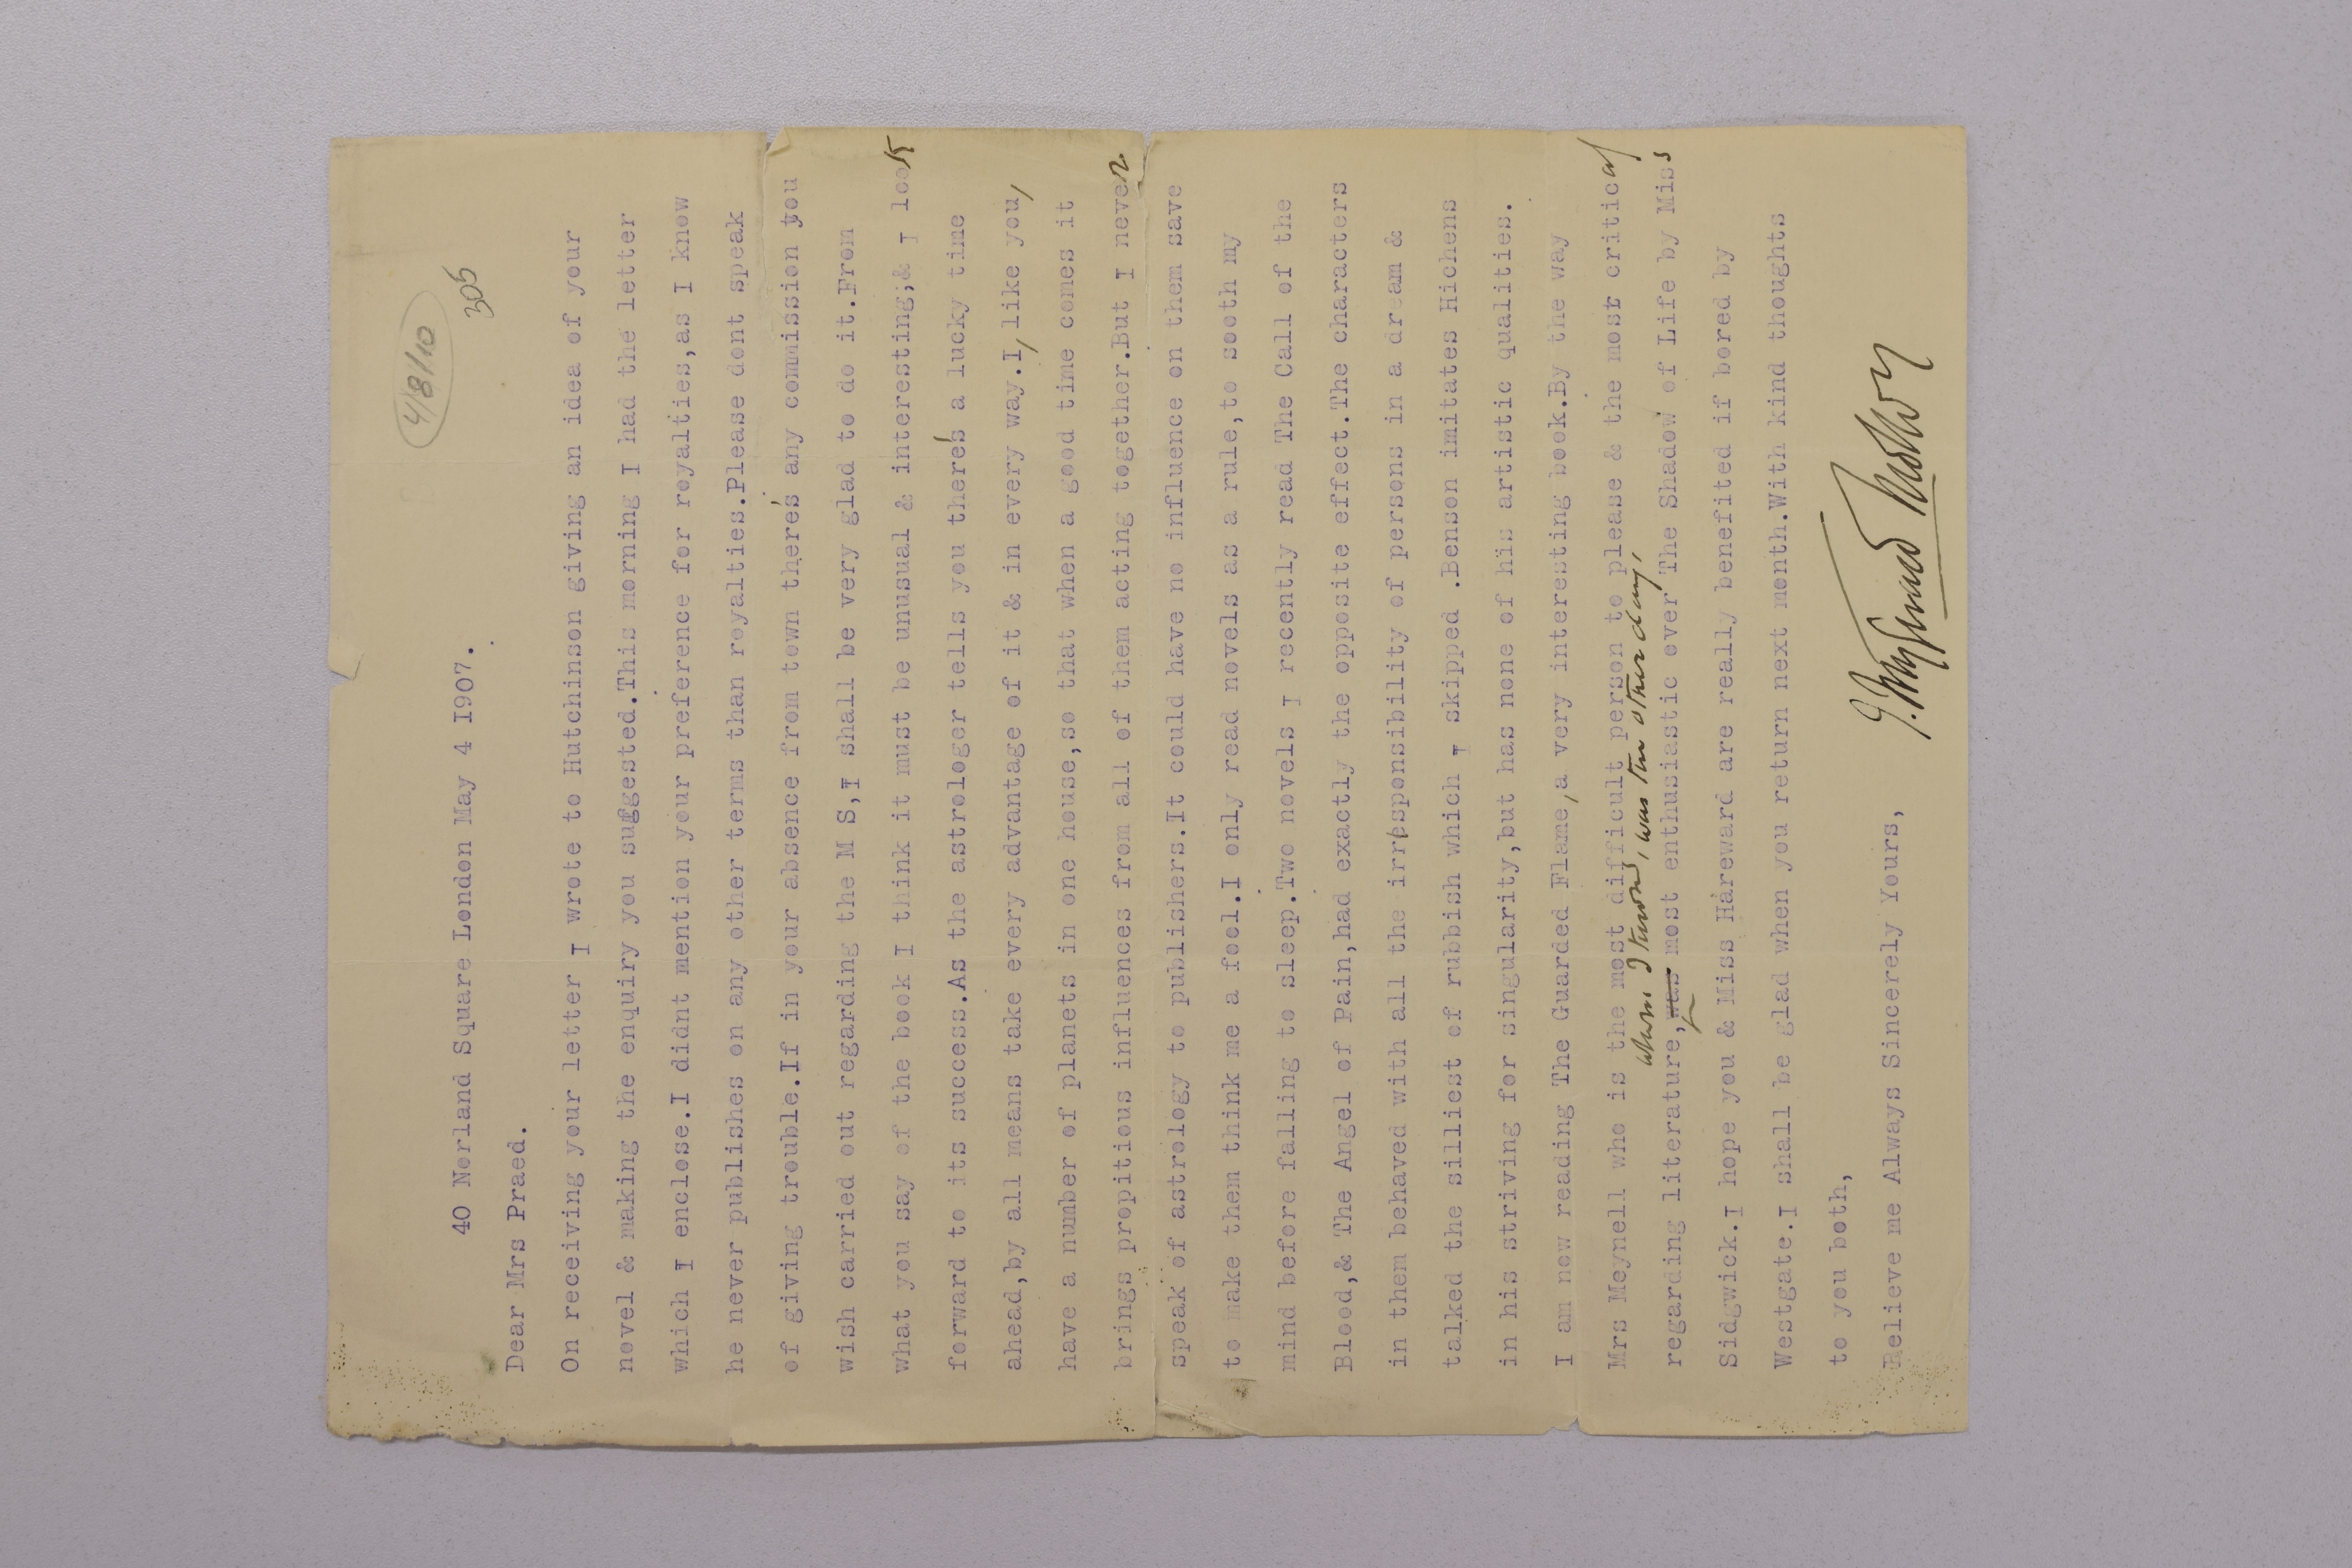 4/8/10
305
40 Norland Square London May 4 I907.
Dear Mrs Praed.
On receiving your letter I wrote to Hutchinson giving an idea of your
novel & making the enquiry you suggested.This morning I had the letter
which I enclose.I didnt mention your preference for royalties,as I know
he never publishes on any other terms than royalties.Please dont speak
of giving trouble.If in your absence from town there's any commission you
wish carried out regarding the M S,I shall be very glad to do it.From
what you say of the book I think it must be unusual & interesting;& I look
forward to its success.As the astrologer tells you there's a lucky time
ahead,by all means take every advantage of it & in every way.I, like you,
have a number of planets in one house,so that when a good time comes it
brings propitious influences from all of them acting together.But I never
speak of astrology to publishers.It could have no influence on them save
to make them think me a fool.I only read novels as a rule,to sooth my
mind before falling to sleep.Two novels I recently read The Call of the
Blood,& The Angel of Pain,had exactly the opposite effect.The characters
in them behaved with all the irresponsibility of persons in a dream &
talked the silliest of rubbish which I skipped .Benson imitates Hichens
in his striving for singularity,but has none of his artistic qualities.
I am now reading The Guarded Flame,a very interesting book.By the way
Mrs Meynell who is the most difficult person to please & the most critical
whom I know, was the other day,
regarding literature,was most enthusiastic over The Shadow of Life by Miss
Sidgwick.I hope you & Miss Hareward are really benefited if bored by
Westgate.I shall be glad when you return next month.With kind thoughts
to you both,
Believe me Always Sincerely Yours,